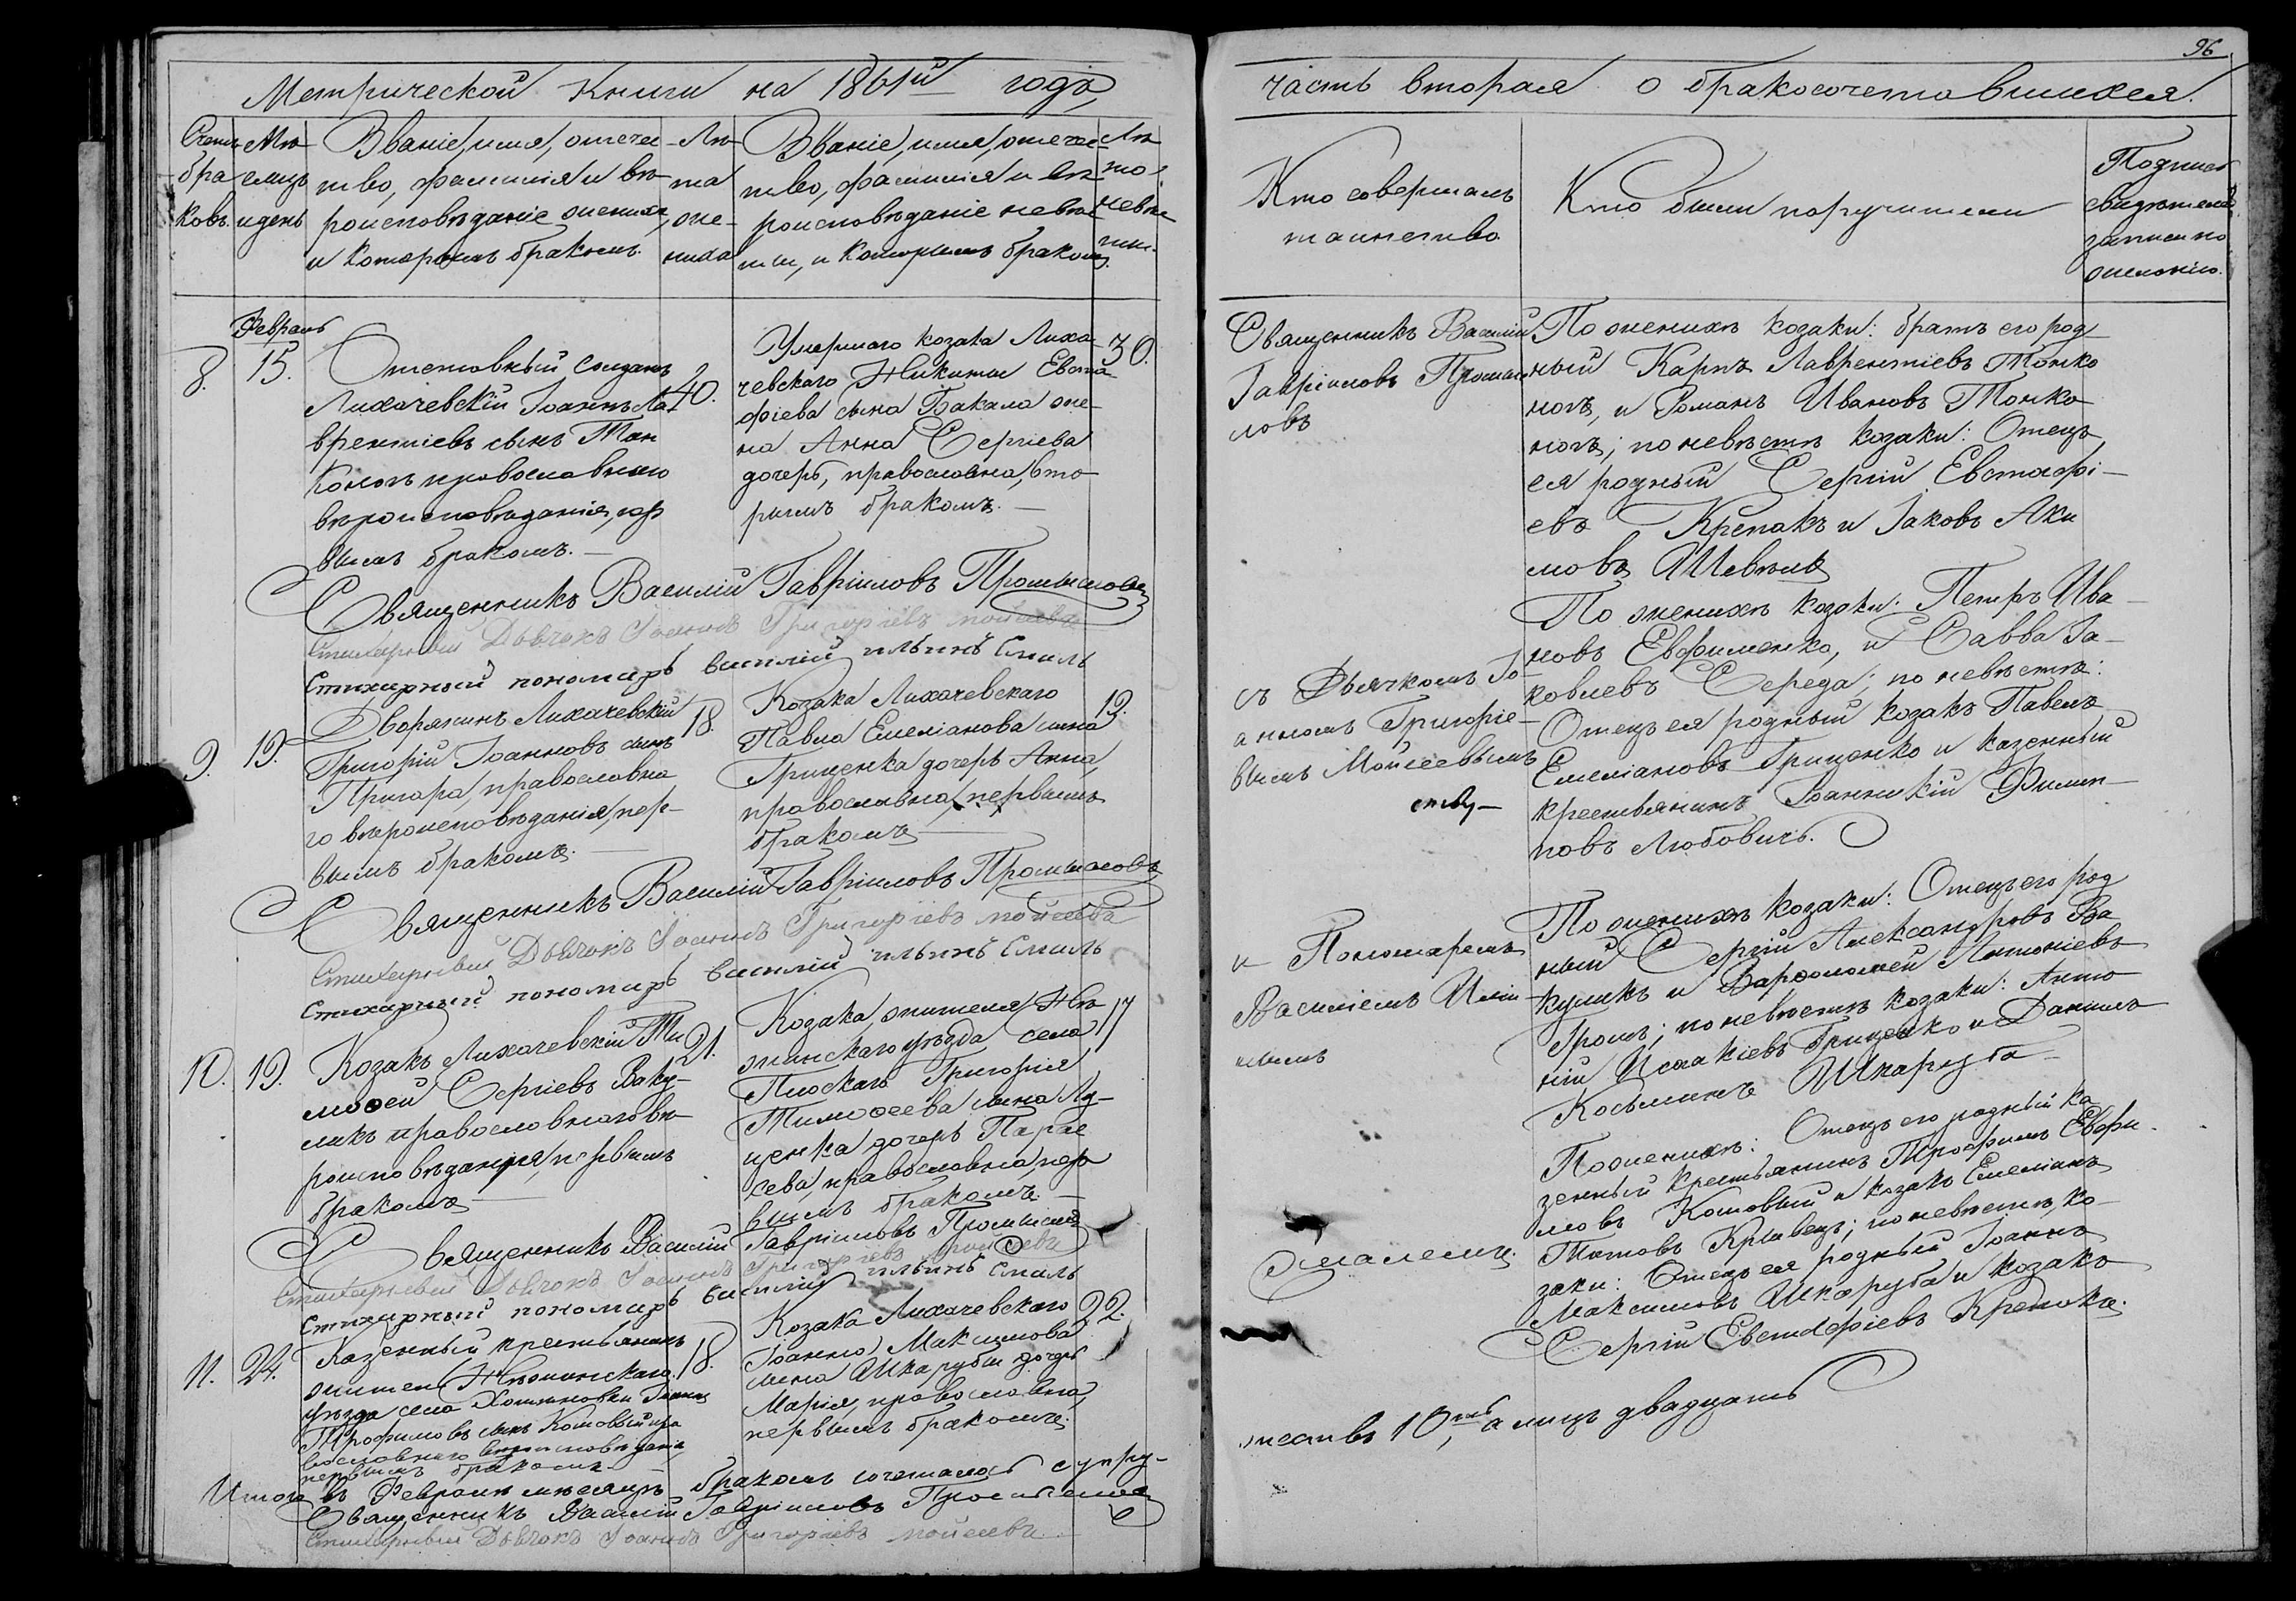 96
Метрической Книги на 1861й годъ,
часть вторая о бракосочетавшихся.
Счетъ бра ковъ.
Мѣ сяцъ и день
Званіе, имя, отече
ство, фамилія и вѣ
роисповѣданіе жениха,
и которымъ бракомъ.
Лѣ
та
же-
ниха
Званіе, имя, отече
ство, фамилія и вѣ
роисповѣданіе невѣс
ты, и которымъ бракомъ.
Лѣ
та
невѣс
ты.
Кто совершалъ
таинство
Кто были поручители
Подпись
свидѣтелей
записи по
желанію.
Февраль
8.
15.
Отставный солдатъ
Лихачевскій Іоаннъ Ла
врентіевъ сынъ Тон
коногъ православнаго
вѣроисповѣданія, пер
вымъ бракомъ.
40.
Умершаго козака Лиха
чевскаго Никиты Евста
фіева сына Бакала же
на Анна Сергіева
дочерь, православна, вто
рымъ бракомъ.
30.
Священникъ Василій
Гавріиловъ Промыс
ловъ
По женихѣ козаки: братъ его род
ный Карпъ Лаврентіевъ Тонко
ногъ, и Романъ Ивановъ Тонко
ногъ; по невѣстѣ козаки: Отецъ
ея родный Сергій Евстафі-
евъ Крепакъ и Іаковъ Аки
мовъ
Священникъ Василій Гавріиловъ Промысловъ
Стихарный Дьячокъ Іоаннъ Григоріевъ Мойсеевъ
Стихарный пономарь василій ильинъ Смаль
9.
19.
Дворянинъ Лихачевскій
Григорій Іоанновъ сынъ
Пригара, православна
го вѣроисповѣданія, пер-
вымъ бракомъ.
18.
Козака Лихачевскаго
Павла Емеліанова сына
Гриценка дочерь Анна,
православна, первымъ
бракомъ
19.
съ Дьячкомъ Іо-
анномъ Григоріе-
вымъ Мойсеевымъ
По женихѣ козаки: Петръ Ива
новъ Евфименко, и Савва Іа-
ковлевъ Середа; по невѣстѣ:
Отецъ ея родный козакъ Павелъ
Емеліановъ Гриценко и казенный
крестьянинъ Іоанникій Филип-
повъ Любовичъ.
Священникъ Василій Гавріиловъ Промысловъ
Стихарный Дьячокъ Іоаннъ Григоріевъ Мойсеевъ
Стихарный пономарь василій ильинъ Смаль
10.
19.
Козакъ Лихачевскій Ти
мофей Сергіевъ Ваку-
ликъ православнаго вѣ
роисповѣданія, первымъ
бракомъ
21.
Козака, жителя Нѣ
жинскаго уѣзда села
Плоскаго Григорія
Тимофеева сына Лу-
ценка дочерь Парас
кева, православна, пер
вымъ бракомъ.
17
и Пономаремъ
Василіемъ Ильи-
нымъ
По женихѣ козаки: Отецъ его род
ный Сергій Александровъ Ва
куликъ и Варфоломей Антоніевъ
Громъ; по невѣстѣ козаки: Анто
ній Исаакіевъ Гриценко и Даніилъ
Косьминъ Шкаруба
Священникъ Василій Гавріиловъ Промысловъ
Стихарный Дьячокъ Іоаннъ Григоріевъ Мойсеевъ
Стихарный пономарь василій ильинъ Смаль
11.
24.
Казенный крестьянинъ
житель Нѣжинскаго
уѣзда села Хотиновки Іоаннъ
Трофимовъ сынъ Котовый пра
вославнаго вѣроисповѣданія,
первымъ бракомъ
18.
Козака Лихачевскаго
Іоанна Максимова
сына Шкарубы дочерь
Марія, православна,
первымъ бракомъ.
22.
Смалемъ.
По женихѣ: Отецъ его родный ка
зенный крестьянинъ Трофимъ Евфи
мовъ Котовый и козакъ Емеліанъ
Титовъ Кривецъ; по невѣстѣ ко-
заки: Отецъ ея родный Іоаннъ
Максимовъ Шкаруба и козакъ
Сергій Евстафіевъ Крепакъ.
Итого въ Февралѣ мѣсяцѣ бракомъ сочеталось супру-
жествъ 10ть, а лицъ двадцать
Священникъ Василій Гавріиловъ Промысловъ
Стихарный Дьячокъ Іоаннъ Григоріевъ Мойсеевъ